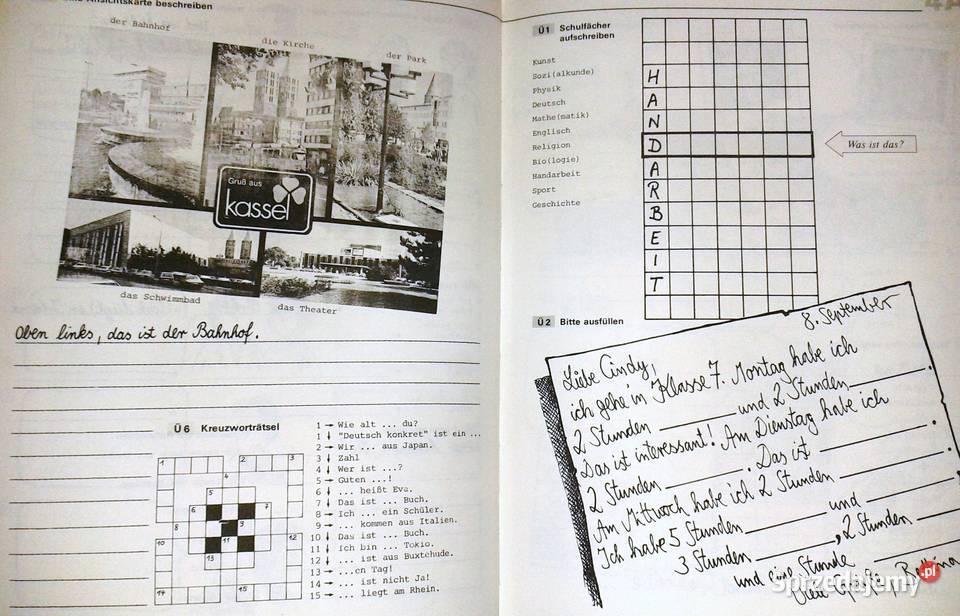 eine Ansichtskarte beschreiben
der Bahnhof
die Kirche
der Park
Gruß aus
kassel
das Schwimmbad
das Theater
Oben links, das ist der Bahnhof.
Ü 6 Kreuzworträtsel
1 → Wie alt ... du?
1 ↓ "Deutsch konkret" ist ein ...
2 → Wir ... aus Japan.
3 ↓ Zahl
4 ↓ Wer ist ...?
5 → Guten ...!
6 ↓ ... heißt Eva.
7 ↓ Das ist ... Buch.
8 → Ich ... ein Schüler.
9 → ... kommen aus Italien.
10 ↓ Das ist ... Buch.
11 ↓ Ich bin ... Tokio.
12 ↓ ... ist aus Buxtehude.
13 → ...en Tag!
14 → ... ist nicht Ja!
15 → ... liegt am Rhein.
1
2
3
4
5
6
7
8
9
10
11
12
13
14
15
Ü1 Schulfächer
aufschreiben
Kunst
Sozi(alkunde)
Physik
Deutsch
Mathe(matik)
Englisch
Religion
Bio(logie)
Handarbeit
Sport
Geschichte
H
A
N
D
A
R
B
E
I
T
Was ist das?
Ü2 Bitte ausfüllen
8. September
Liebe Cindy,
ich gehe in Klasse 7. Montag habe ich
2 Stunden ______ und 2 Stunden ______.
Das ist interessant! Am Dienstag habe ich
2 Stunden ______. Das ist ______.
Am Mittwoch habe ich 2 Stunden ______.
Ich habe 5 Stunden ______ und ______,
3 Stunden ______, 2 Stunden ______
und eine Stunde ______.
Viele Grüße, Bettina
Sprzedajemy.pl